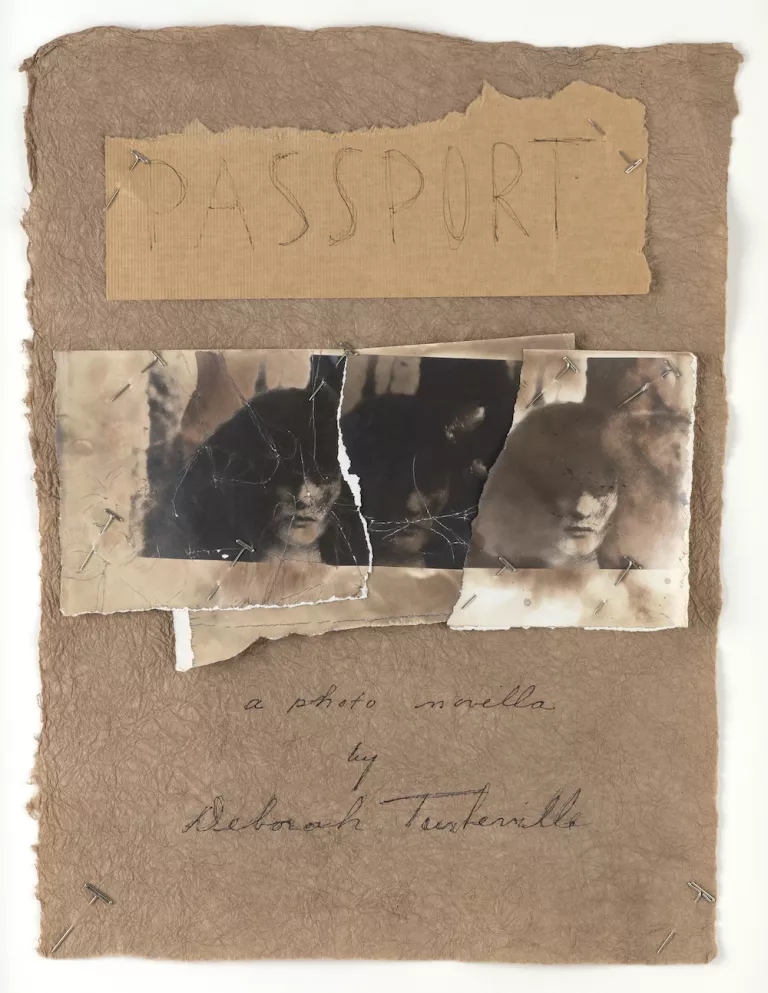 PASSPORT
a photo novella
by
Deborah Turbeville